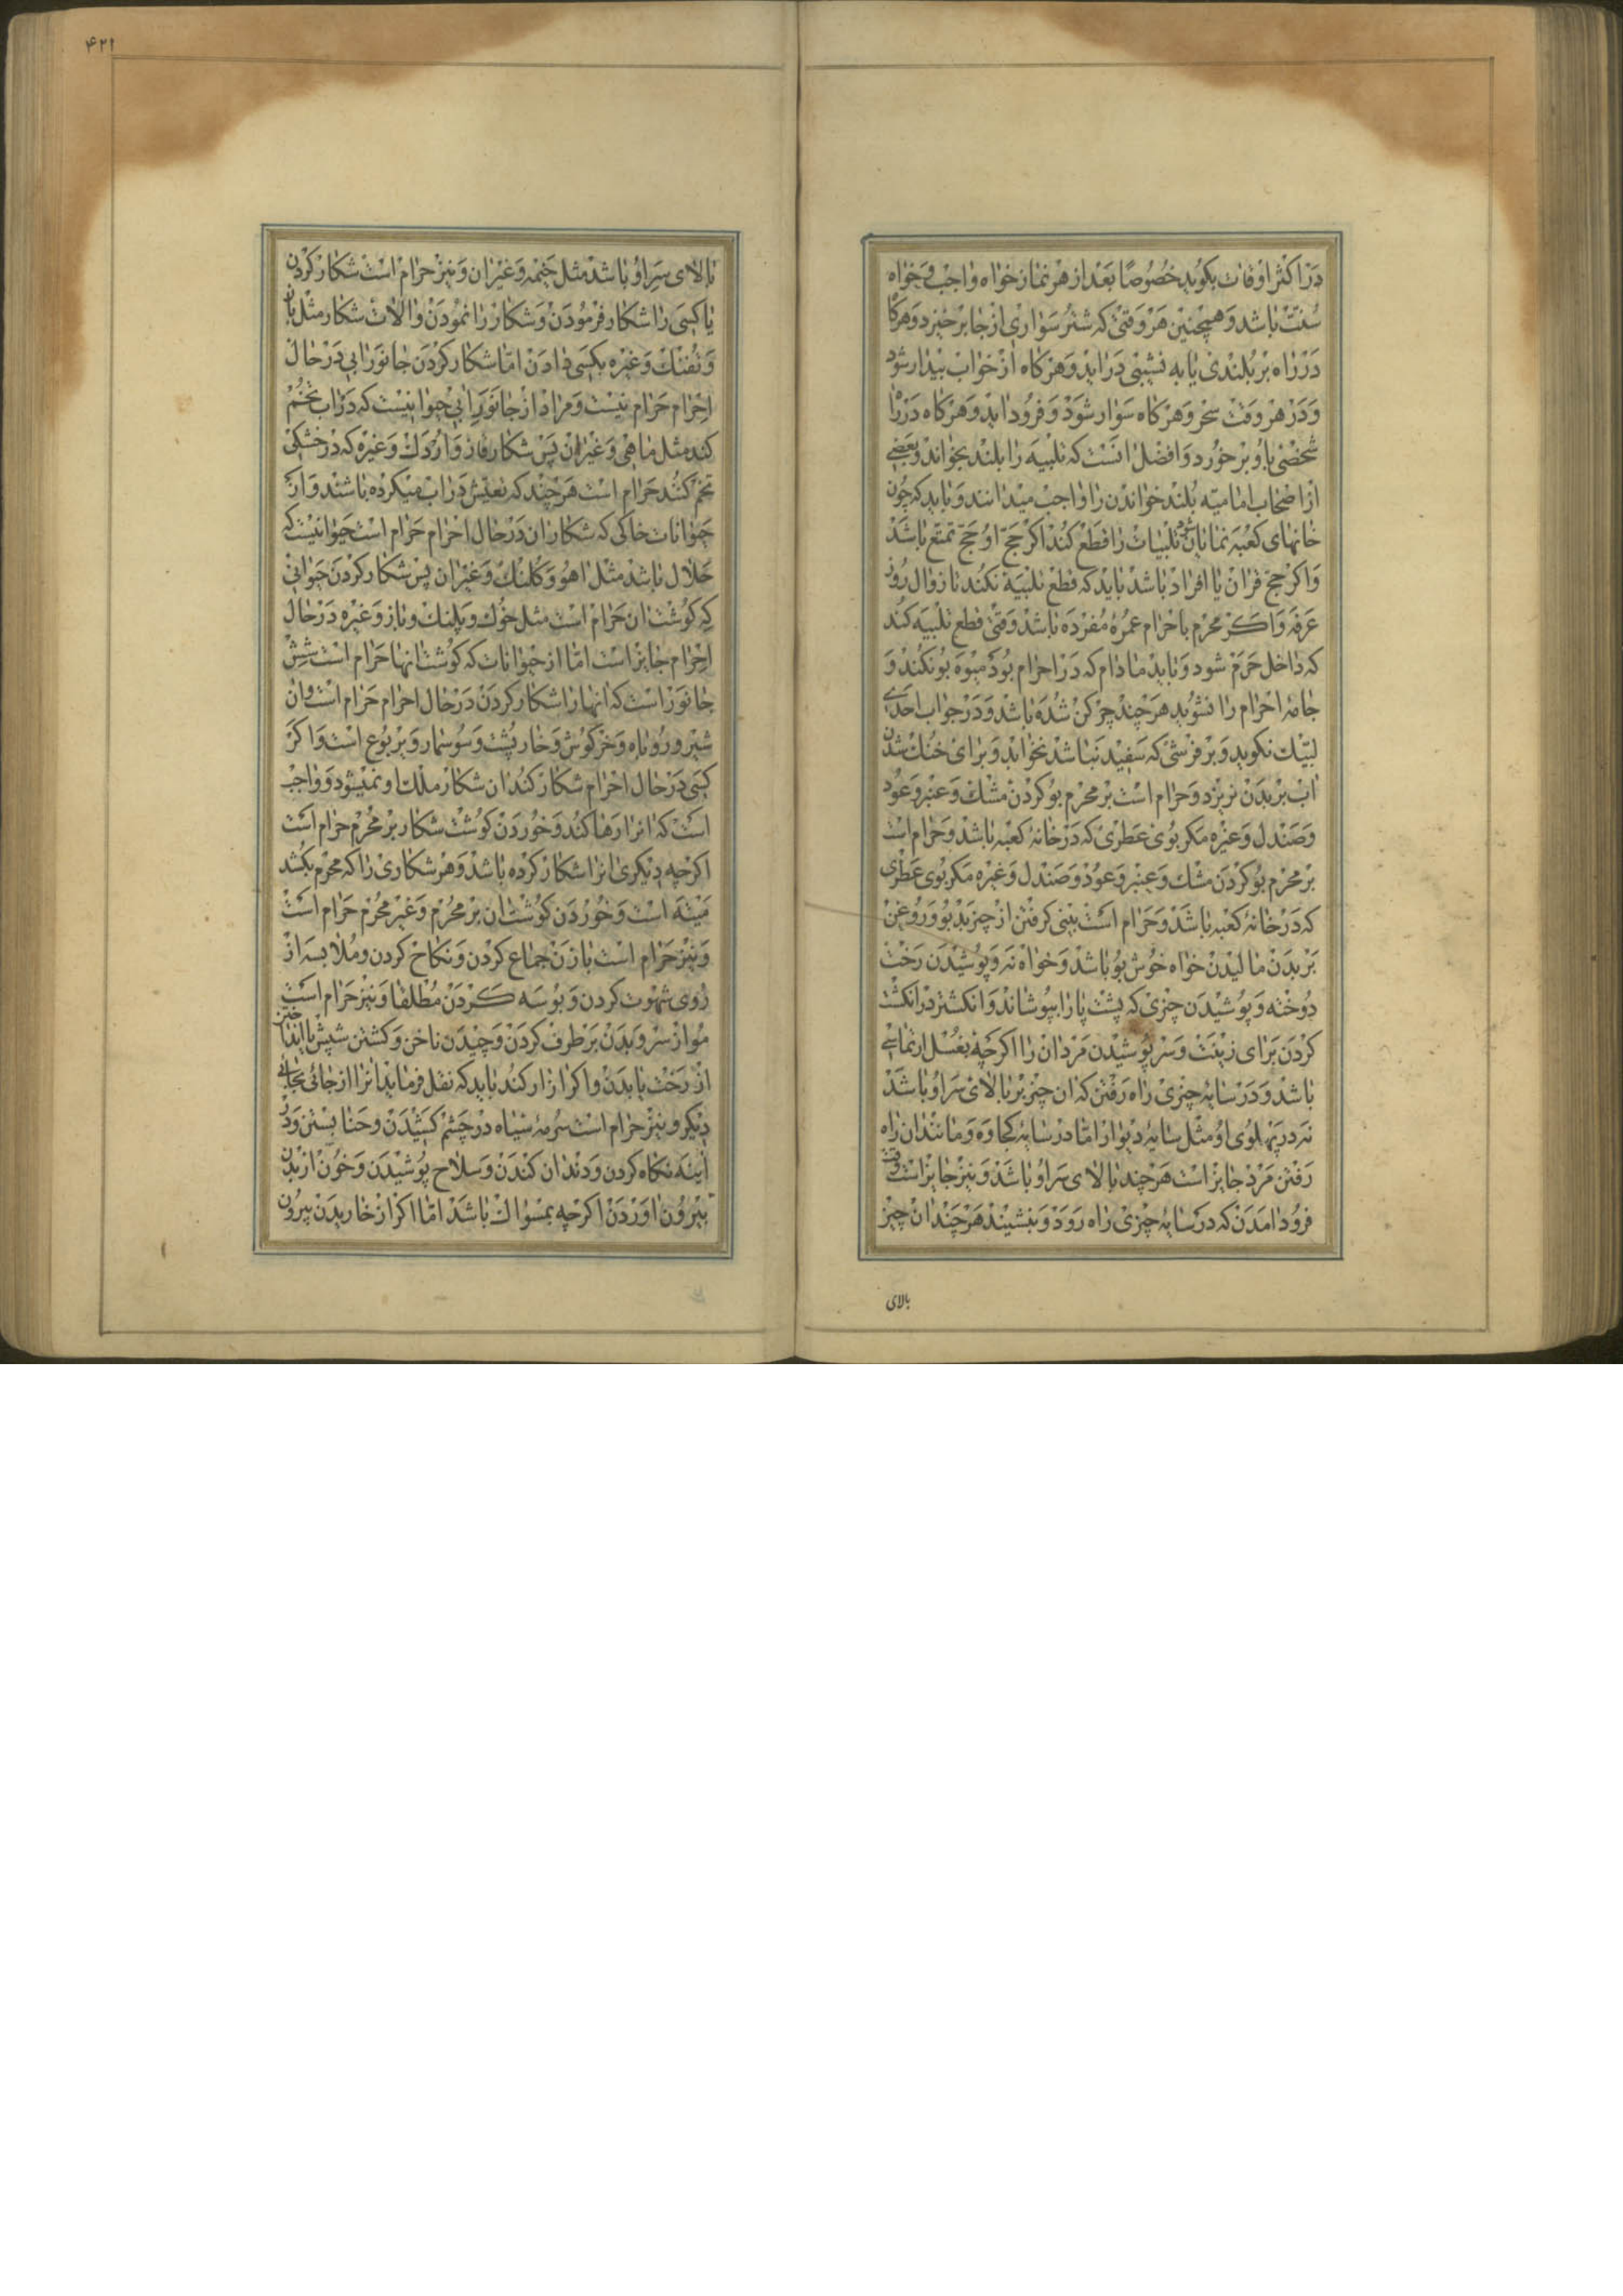 در اکثر اوقات بکوید خصوصًا بعد از هر نماز خواه واجب و خواه
سنّت باشد و همچنین هر وقتی که شتر سواری از جا برخیزد و هرکاه
در راه بر بلندی یا به نشیبی در اید و هرکاه از خواب بیدار شود
و در هر وقت سحر و هرکاه سوار شود و فرود اید و هرکاه در راه
شخصی باو برخورد و افضل انست که تلبیه را بلند بخواند و بعضی
از اصحاب امامیّه بلند خواندن را واجب میدانند و باید که چون
خانهای کعبه نمایان شود تلبیات را قطع کند اکر حجّ او حجّ تمتع باشد
و اکر حج قران یا افراد باشد باید که قطع تلبیه نکند تا زوال روز
عرفه و اکر محرم باحرام عمرهٔ مفرده باشد وقتی قطع تلبیه کند
که داخل حرم شود و باید مادام که در احرام بود میوه بو نکند و
جامهٔ احرام را نشوید هرچند چرکن شده باشد و در جواب احدی
لبیّک نکوید و بر فرشی که سفید نباشد نخوابد و برای خنک شدن
اب بر بدن نریزد و حرام است بر محرم بو کردن مشک و عنبر و عود
و صندل و غیره مکر بوی عطری که در خانهٔ کعبه باشد و حرام است
بر محرم بو کردن مشک و عنبر و عود و صندل و غیره مکر بوی عطری
که در خانهٔ کعبه باشد و حرام است بینی کرفتن از چیز بدبو و روغن
بر بدن مالیدن خواه خوش بو باشد و خواه نه و پوشیدن رخت
دوخته و پوشیدن چیزی که پشت پا را بپوشاند و انکشتر در انکشت
کردن برای زینت و سر پوشیدن مردان را اکرچه بغسل ارتماسی
باشد و در سایهٔ چیزی راه رفتن که ان چیز بر بالای سر او باشد
نه در پهلوی او مثل سایهٔ دیوار امّا در سایهٔ کجاوه و مانند ان راه
رفتن مرد جایز است هرچند بالای سر او باشد و نیز جایز است وقت
فرود امدن که در سایهٔ چیزی راه رود و بنشیند هرچند ان چیز
بالای
۴۲۱
بالای سر او باشد مثل خیمه و غیر ان و نیز حرام است شکار کردن
یا کسی را شکار فرمودن و شکار را نمودن و الات شکار مثل باز
و تفنک و غیره بکسی دادن امّا شکار کردن جانور ابی در حال
احرام حرام نیست و مراد از جانور ابی حیوانیست که در اب تخم
کند مثل ماهی و غیر ان پس شکار قاز و اردک و غیره که در خشکی
تخم کنند حرام است هرچند که تعیّش در اب میکرده باشند و از
حیوانات خاکی که شکار ان در حال احرام حرام است حیوانیست که
حلال باشد مثل اهو و کلنک و غیر ان پس شکار کردن حیوانی
که کوشت ان حرام است مثل خوک و پلنک و باز و غیره در حال
احرام جایز است امّا از حیوانات که کوشت انها حرام است شش
جانور است که انها را شکار کردن در حال احرام حرام است و ان
شیر و روباه و خرکوش و خارپشت و سوسمار و یربوع است و اکر
کسی در حال احرام شکار کند ان شکار ملک او نمیشود و واجب
است که انرا رها کند و خوردن کوشت شکار بر محرم حرام است
اکرچه دیکری انرا شکار کرده باشد و هر شکاری را که محرم بکشد
میته است و خوردن کوشت ان بر محرم و غیر محرم حرام است
و نیز حرام است با زن جماع کردن و نکاح کردن و ملابسه از
روی شهوت کردن و بوسه کردن مطلقا و نیز حرام است
مو از سر و بدن برطرف کردن و چیدن ناخن و کشتن شپش یا انداختن
از رخت یا بدن و اکر ازار کند باید که نقل فرماید انرا از جائی بجائی
دیکر و نیز حرام است سرمهٔ سیاه در چشم کشیدن و حنا بستن و در
اینه نکاه کردن و دندان کندن و سلاح پوشیدن و خون از بدن
بیرون اوردن اکرچه بمسواک باشد امّا اکر از خاریدن بیرون